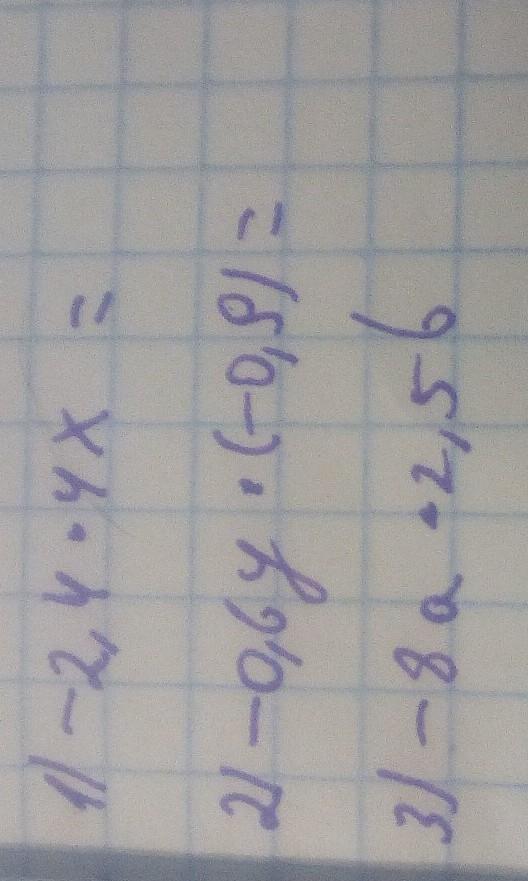 1) -2,4 · 4x =
2) -0,6y · (-0,9) =
3) -8a · 2,5b